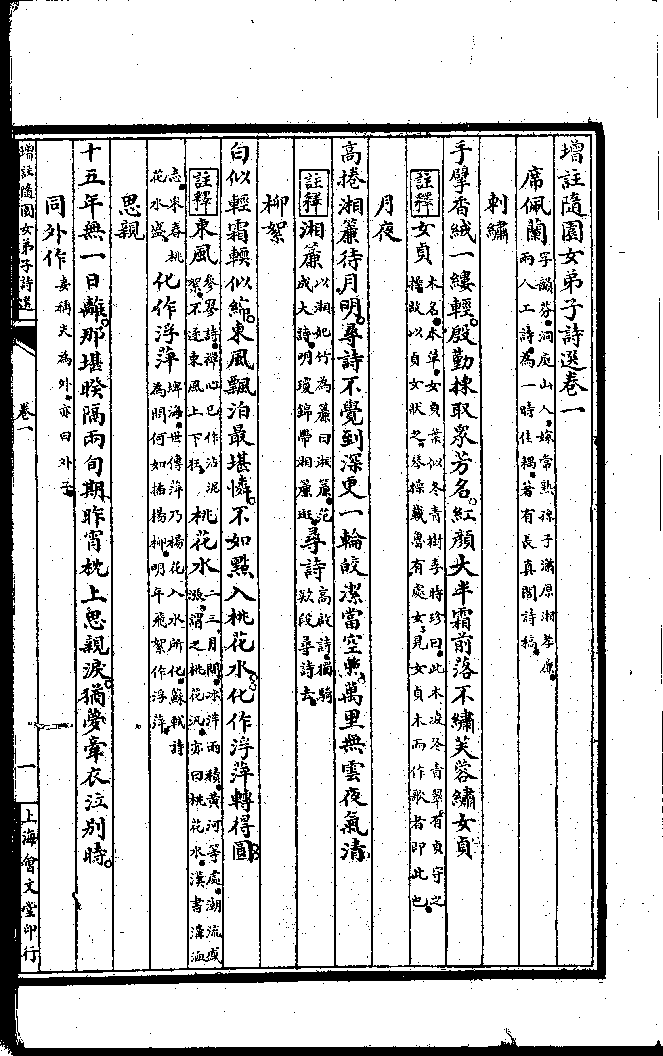 增註隨園女弟子詩選卷一
席佩蘭字韻芬洞庭山人嫁常熟孫子瀟原湘孝廉兩人工詩為一時佳耦著有長真閣詩稿
刺繡
手擘香絨一縷輕殷勤揀取眾芳名紅顏大半霜前落不繡芙蓉繡女貞
註釋女貞木名本草女貞葉似冬青樹李時珍曰此木凌冬青翠有貞守之操故以貞女狀之琴操載魯有處女見女貞木而作歌者即此也
月夜
高捲湘簾待月明尋詩不覺到深更一輪皎潔當空照萬里無雲夜氣清
註釋湘簾以湘妃竹為簾曰湘簾范成大詩明瓊錦帶湘簾逝尋詩高啟詩獨騎款段尋詩去
柳絮
白似輕霜輭似綿東風飄泊最堪憐不如點入桃花水化作浮萍轉得圓
註釋東風參寥詩禪心已作沾泥絮不逐東風上下狂桃花水二三月間冰泮雨積黃河等處潮流盛漲謂之桃花汛亦曰桃花水漢書溝洫
志來春桃花水盛化作浮萍埤海世傳萍乃楊花入水所化蘇軾詩為問何如插楊柳明年飛絮作浮萍
思親
十五年無一日離那堪暌隔兩旬期昨宵枕上思親淚猶夢牽衣泣別時
同外作妻稱夫為外亦曰外子
增註隨園女弟子詩選
卷一
一
上海會文堂印行